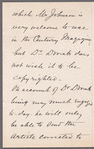 which Mr Johnson is
very welcome to use
in the Century Magazine
but Dr. Dvorak does
not wish it to be
copyrighted.
On account of Dr. Dvorak
being very much engaged
to-day he will only
be able to sent the
articles corrected to